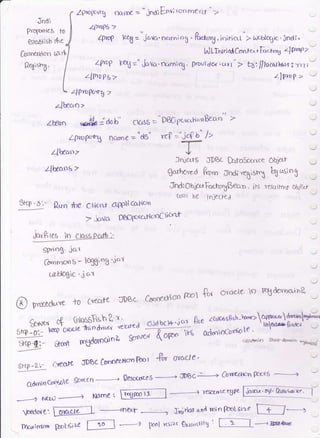 <property name = "jndiEnvironment">
Jndi
Properties to
Establish the
Connection with
Registry.
<props>
<prop key = "java.naming.factory.initial"> weblogic.jndi.
WLInitialContextFactory </prop>
<prop key = "java.naming.provider.url"> t3://localhost:7001
</props> </prop>
</property>
</bean>
<bean id = "dob" class = "DBOperationBean">
<property name = "ds" ref = "jofb"/>
</bean>
</beans>
Injects JDBC DataSource Object
gathered from Jndi registry by using
JndiObjectFactoryBean. its resultant object
will be injected
Step-5:- Run the client application
> java DBOperationClient
Jar files in classpath:-
spring.jar
commons-logging.jar
weblogic.jar
procedure to create JDBC Connection Pool for oracle in mydomain2
Server of GlassFish 2.x.
Step-0:- keep oracle thin driver related ojdbc14.jar file
Step-1:- start mydomain2 server & open its adminconsole.
Step-2:- create JDBC Connection Pool for oracle.
adminconsole screen → Resources → JDBC → Connection pools →
→ new → Name: → resource type
Vendor: oracle → next → Initial and min Pool size 4 →
Maximum pool size → pool resize Quantity: 2 →